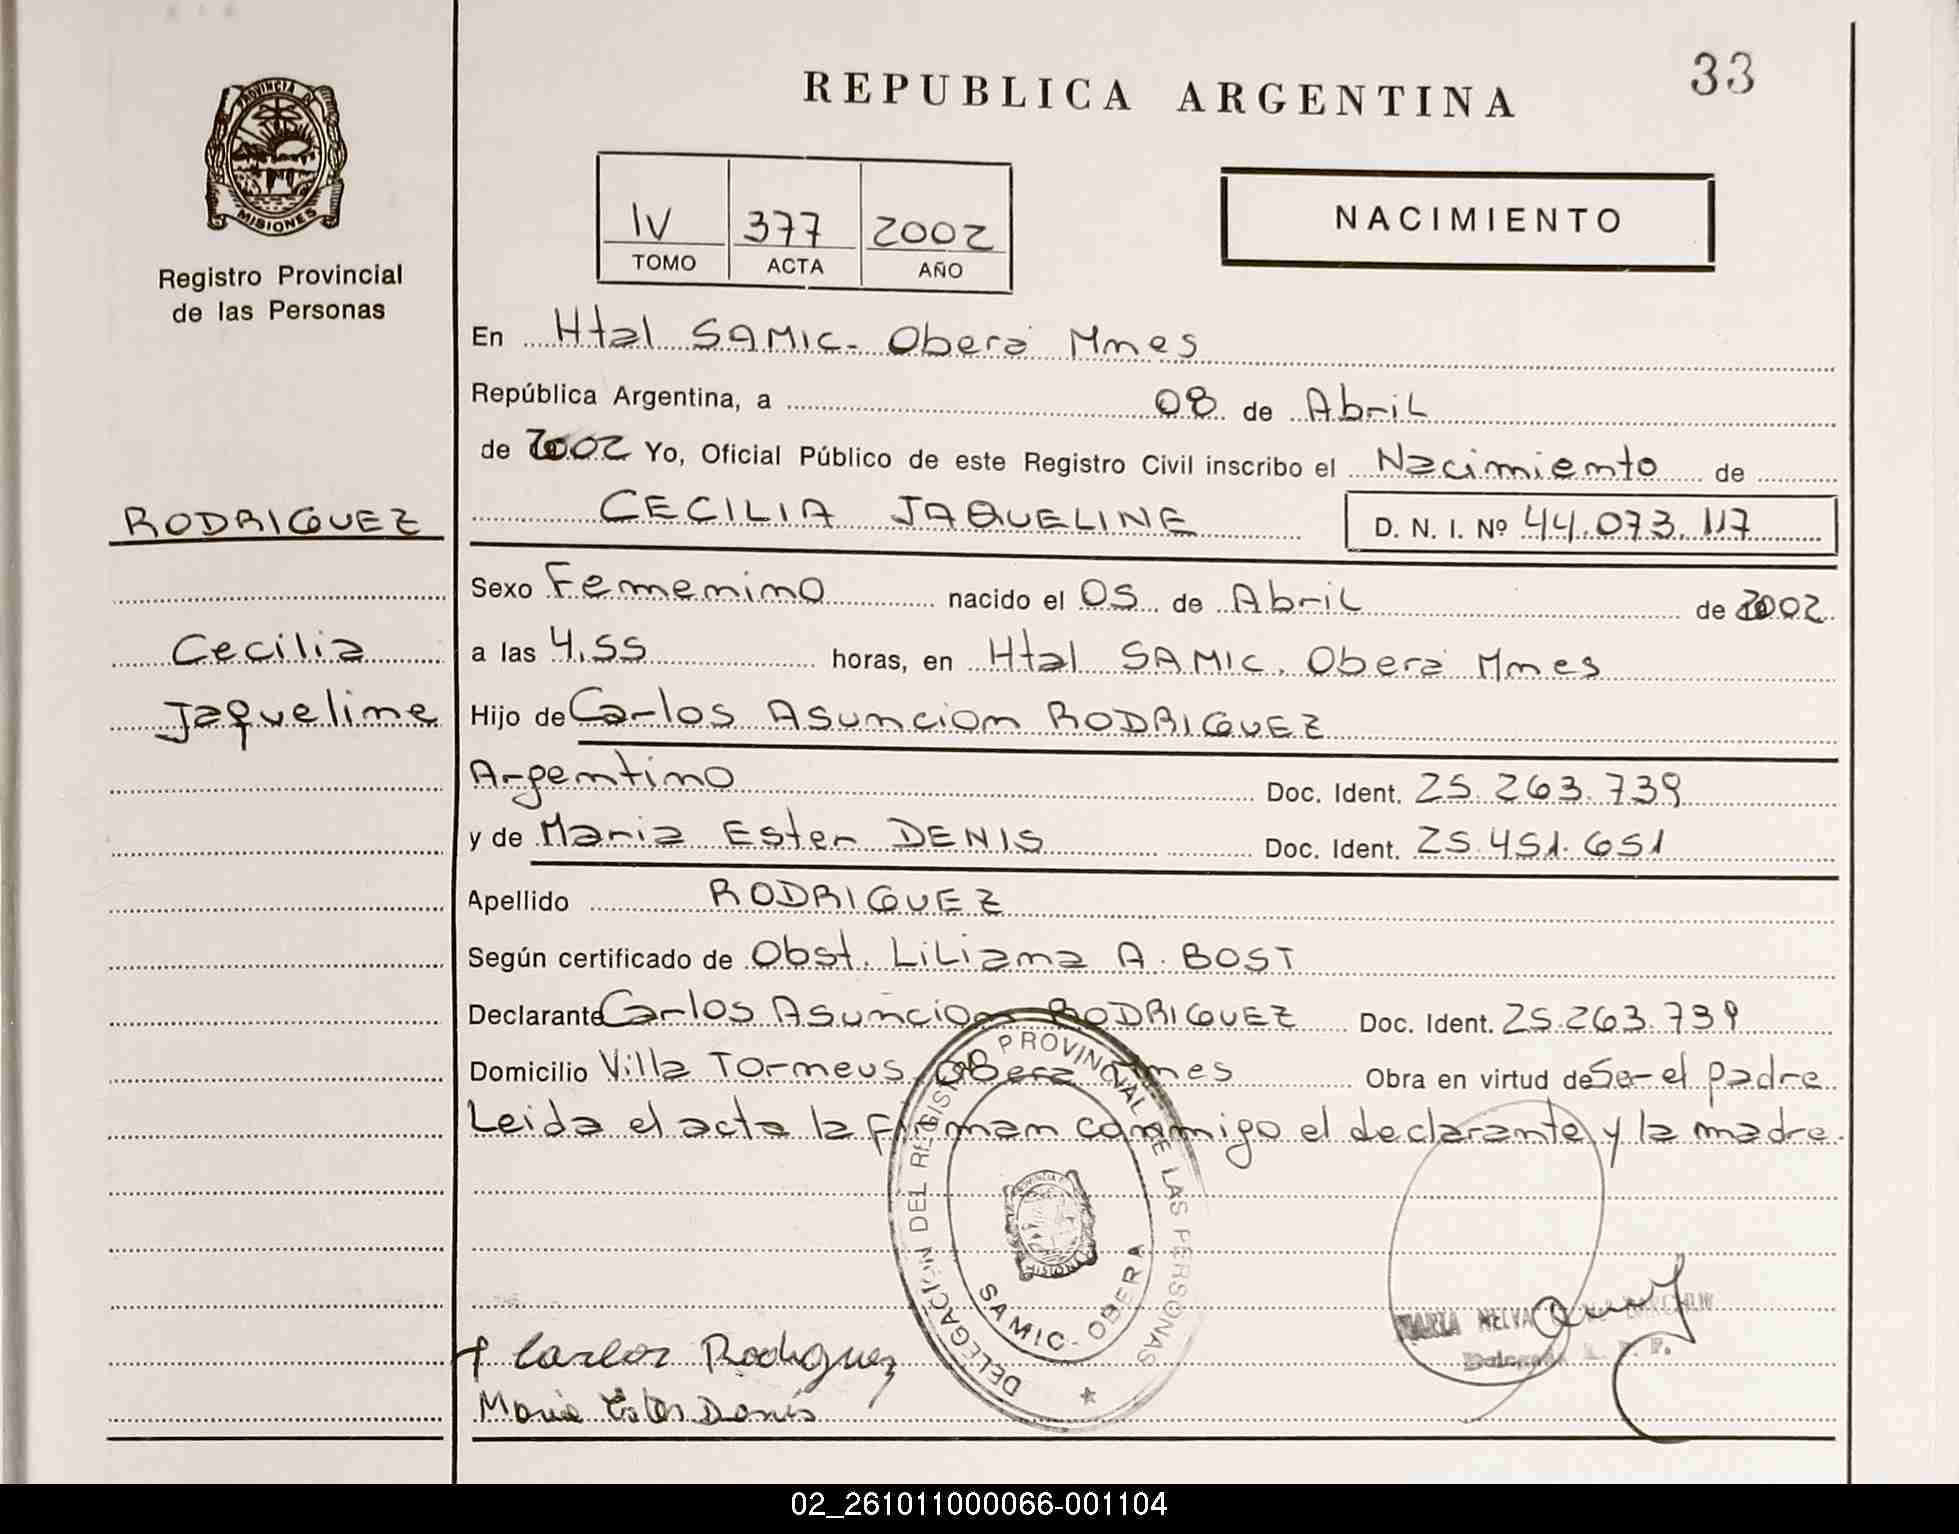 33
REPUBLICA ARGENTINA
PROVINCIA DE
MISIONES
Registro Provincial
de las Personas
IV 377 2002
TOMO ACTA AÑO
NACIMIENTO
En Htal SAMIC - Oberá Mnes
República Argentina, a 08 de Abril
de 2002 Yo, Oficial Público de este Registro Civil inscribo el Nacimiento de
RODRIGUEZ
CECILIA JAQUELINE D. N. I. Nº 44.073.117
Sexo Femenino nacido el 05 de Abril de 2002
Cecilia
a las 4,55 horas, en Htal SAMIC. Oberá Mnes
Jaqueline
Hijo de Carlos Asuncion RODRIGUEZ
Argentino Doc. Ident. 25.263.739
y de Maria Ester DENIS Doc. Ident. 25.451.651
Apellido RODRIGUEZ
Según certificado de Obst. Liliana A. BOST
Declarante Carlos Asuncion RODRIGUEZ Doc. Ident. 25.263.739
Domicilio Villa Torneus Obera Mnes Obra en virtud de Ser el padre
Leida el acta la firman conmigo el declarante y la madre.
DELEGACIÓN DEL REGISTRO PROVINCIAL DE LAS PERSONAS
MISIONES
SAMIC - OBERA
MARIA NELVA
Carlos Rodriguez
Maria Ester Denis
02_261011000066-001104